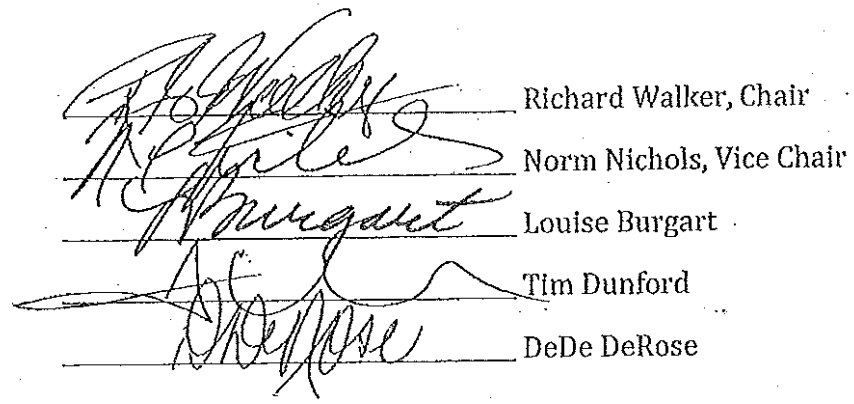 Richard Walker, Chair
Norm Nichols, Vice Chair
Burgart Louise Burgart
Tim Dunford
DDeRose DeDe DeRose